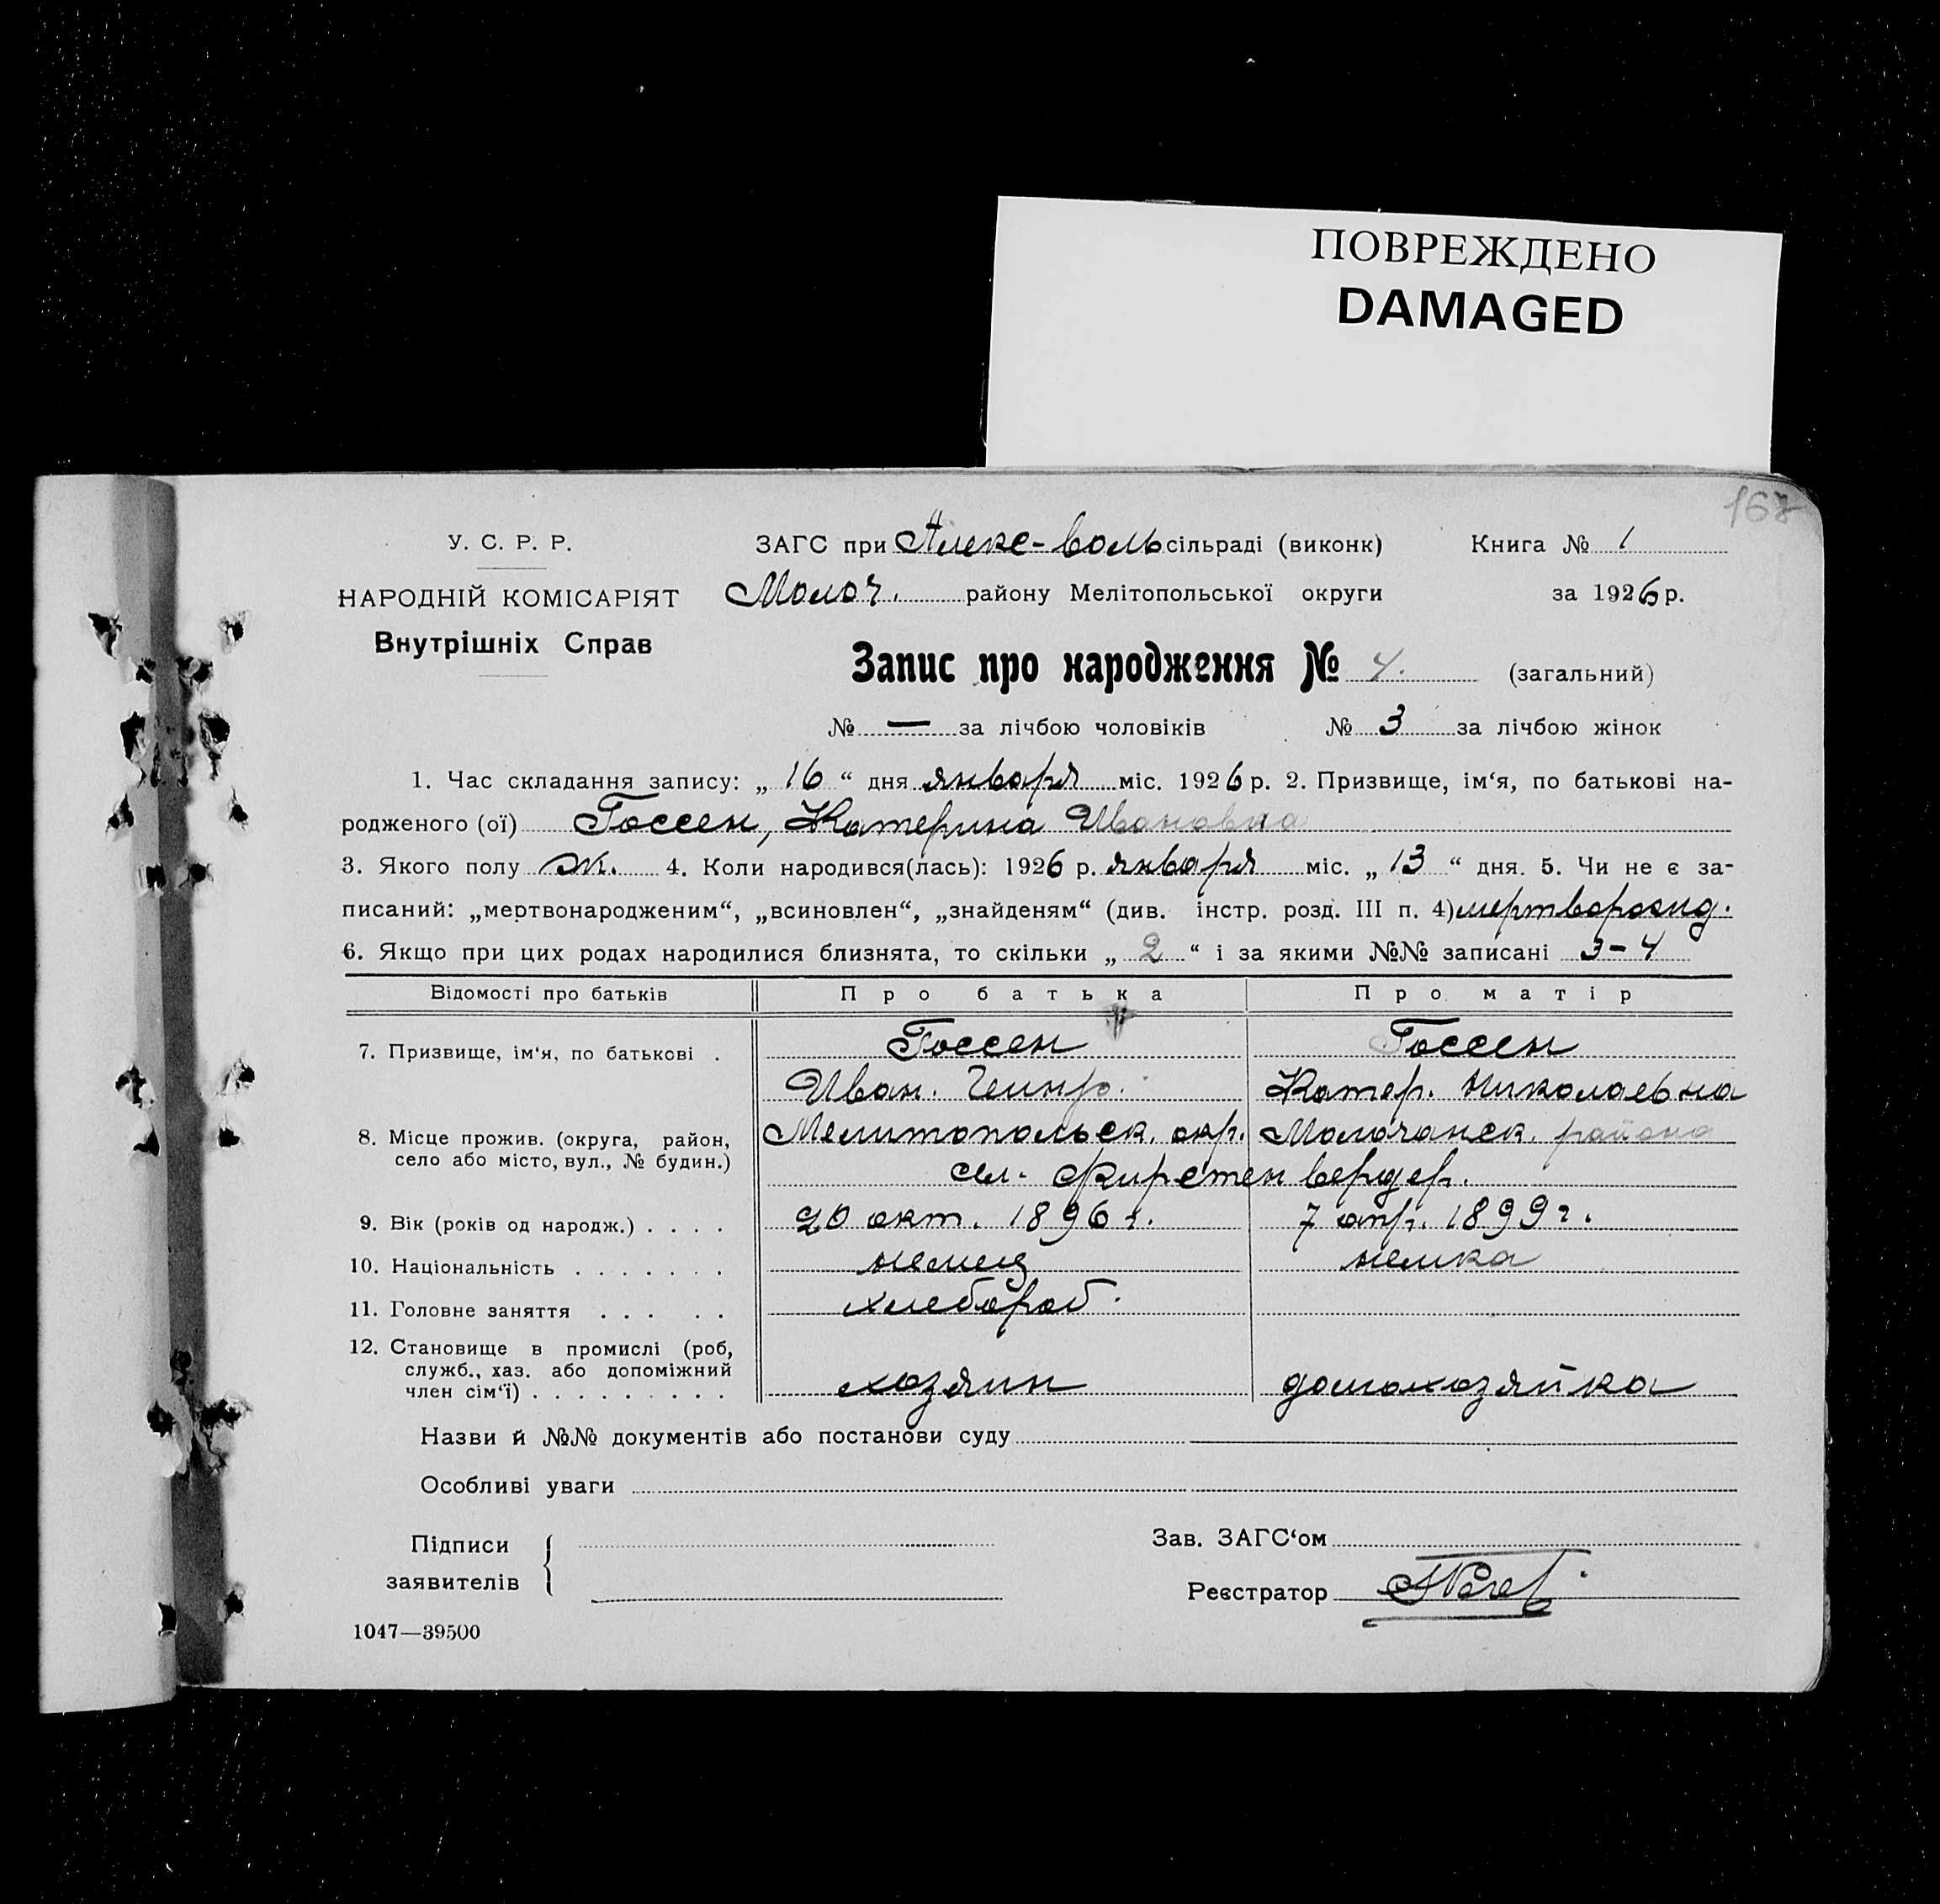 ПОВРЕЖДЕНО
DAMAGED
167
У. С. Р. Р.
НАРОДНІЙ КОМІСАРІЯТ
Внутрішніх Справ
ЗАГС при Алекс-воль сільраді (виконк) Книга № 1
Молоч. району Мелітопольської округи за 1926 р.
Запис про народження № 4. (загальний)
№ — за лічбою чоловіків № 3 за лічбою жінок
1. Час складання запису: „ 16 “ дня января міс. 1926 р. 2. Призвище, ім‘я, по батькові на-
родженого (ої) Госсен, Катерина Ивановна
3. Якого полу ж. 4. Коли народився(лась): 1926 р. января міс. „ 13 “ дня. 5. Чи не є за-
писаний: „мертвонародженим“, „всиновлен“, „знайденям“ (див. інстр. розд. III п. 4) мертворожд.
6. Якщо при цих родах народилися близнята, то скільки „ 2 “ і за якими №№ записані 3-4
Відомості про батьків Про батька Про матір
7. Призвище, ім‘я, по батькові . Госсен Госсен
Иван. Генр. Катер. Николаевна
8. Місце прожив. (округа, район, Мелитопольск. окр. Молочанск. района
село або місто, вул., № будин.) сел. Фирстенвердер.
9. Вік (років од народж.) . . . . 20 окт. 1896 г. 7 апр. 1899 г.
10. Національність . . . . . . . немец немка
11. Головне заняття . . . . . хлебороб.
12. Становище в промислі (роб,
служб., хаз. або допоміжний
член сім‘ї) . . . . . . . . . хозяин домохозяйка
Назви й №№ документів або постанови суду
Особливі уваги
Підписи
заявителів
Зав. ЗАГС‘ом
Реєстратор
1047—39500